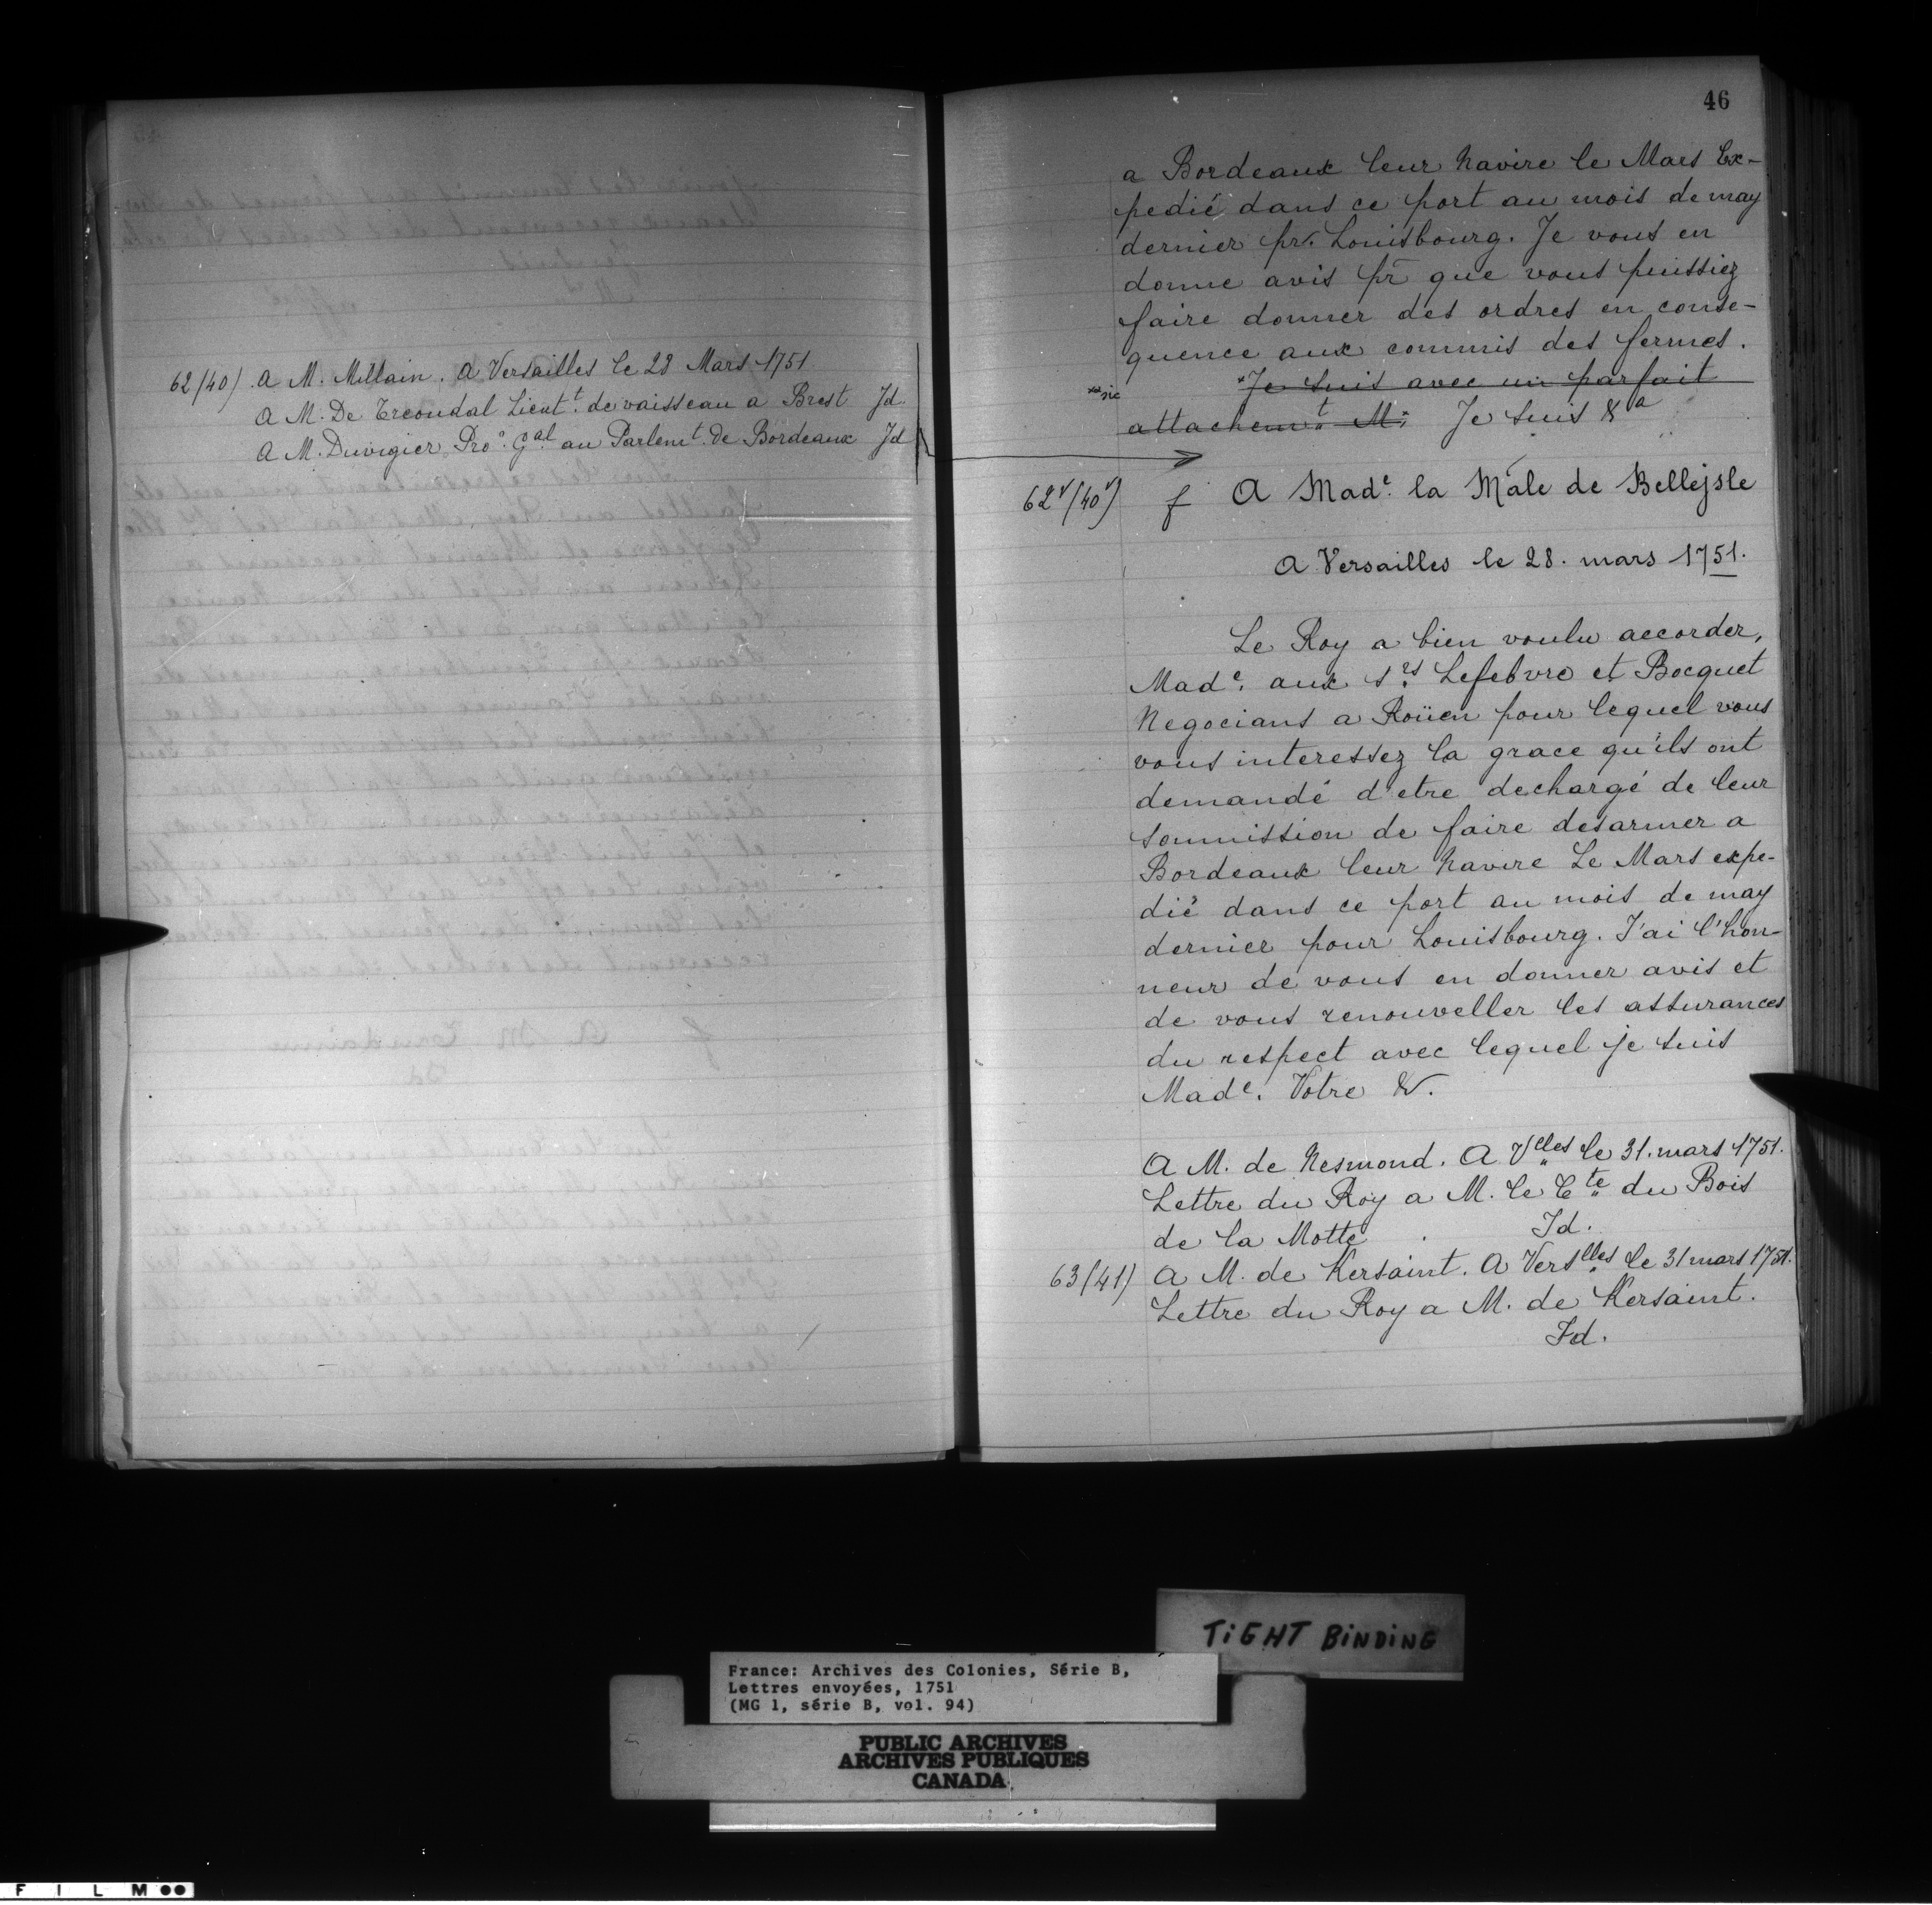 62 (40) A M. Millain. A Versailles le 28 Mars 1751
A M. De Treoudal Lieut.t de vaisseau a Brest Jd.
A M. Duvigier Pro.r g.al au Parlem.t de Bordeaux Jd
46
a Bordeaux leur navire le Mars Ex-
pedié dans ce port au mois de may
dernier pr. Louisbourg. Je vous en
donne avis pr que vous puissiez
faire donner des ordres en conse-
quence aux commis des fermes.
*sic *Je suis avec un parfait
attachem.t M* Je suis &a
62v (40v) f A Made. la Male de Bellejsle
A Versailles le 28. mars 1751.
Le Roy a bien voulu accorder,
Made. aux srs Lefebvre et Bocquet
Negocians a Roüen pour lequel vous
vous interessez la grace qu'ils ont
demandé d'etre dechargé de leur
soumission de faire desarmer a
Bordeaux leur navire Le Mars expe-
dié dans ce port au mois de may
dernier pour Louisbourg. J'ai l'hon-
neur de vous en donner avis et
de vous renouveller les assurances
du respect avec lequel je suis
Made. Votre &.
A M. de Nesmond. A Vlles le 31. mars 1751.
Lettre du Roy a M. le Cte du Bois
de la Motte Jd.
63 (41) A M. de Kersaint. A Verslles le 31 mars 1751.
Lettre du Roy a M. de Kersaint.
Jd.
TIGHT BINDING
France: Archives des Colonies, Série B,
Lettres envoyées, 1751
(MG 1, série B, vol. 94)
PUBLIC ARCHIVES
ARCHIVES PUBLIQUES
CANADA
FILM